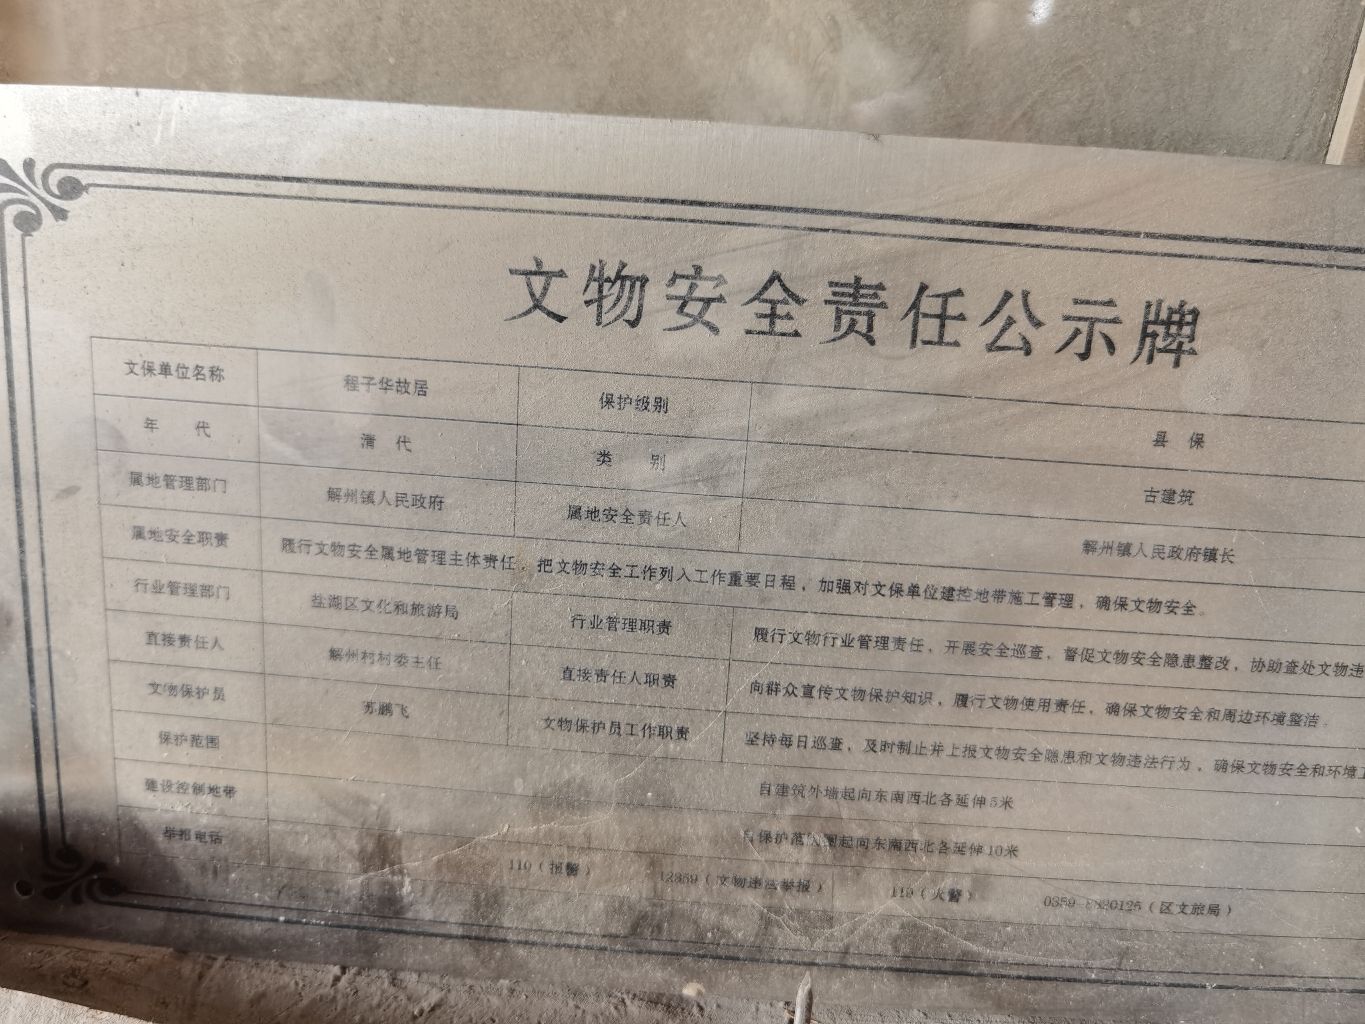 文物安全责任公示牌
文保单位名称 程子华故居 保护级别 县 保
年 代 清 代 类 别 古建筑
属地管理部门 解州镇人民政府 属地安全责任人 解州镇人民政府镇长
属地安全职责 履行文物安全属地管理主体责任，把文物安全工作列入工作重要日程，加强对文保单位建控地带施工管理，确保文物安全。
行业管理部门 盐湖区文化和旅游局 行业管理职责 履行文物行业管理责任，开展安全巡查，督促文物安全隐患整改，协助查处文物违
直接责任人 解州村村委主任 直接责任人职责 向群众宣传文物保护知识，履行文物使用责任，确保文物安全和周边环境整洁。
文物保护员 苏鹏飞 文物保护员工作职责 坚持每日巡查，及时制止并上报文物安全隐患和文物违法行为，确保文物安全和环境
保护范围 自建筑外墙起向东南西北各延伸5米
建设控制地带 自保护范围圈起向东南西北各延伸10米
举报电话 110（报警） 12359（文物违法举报） 119（火警） （区文旅局）